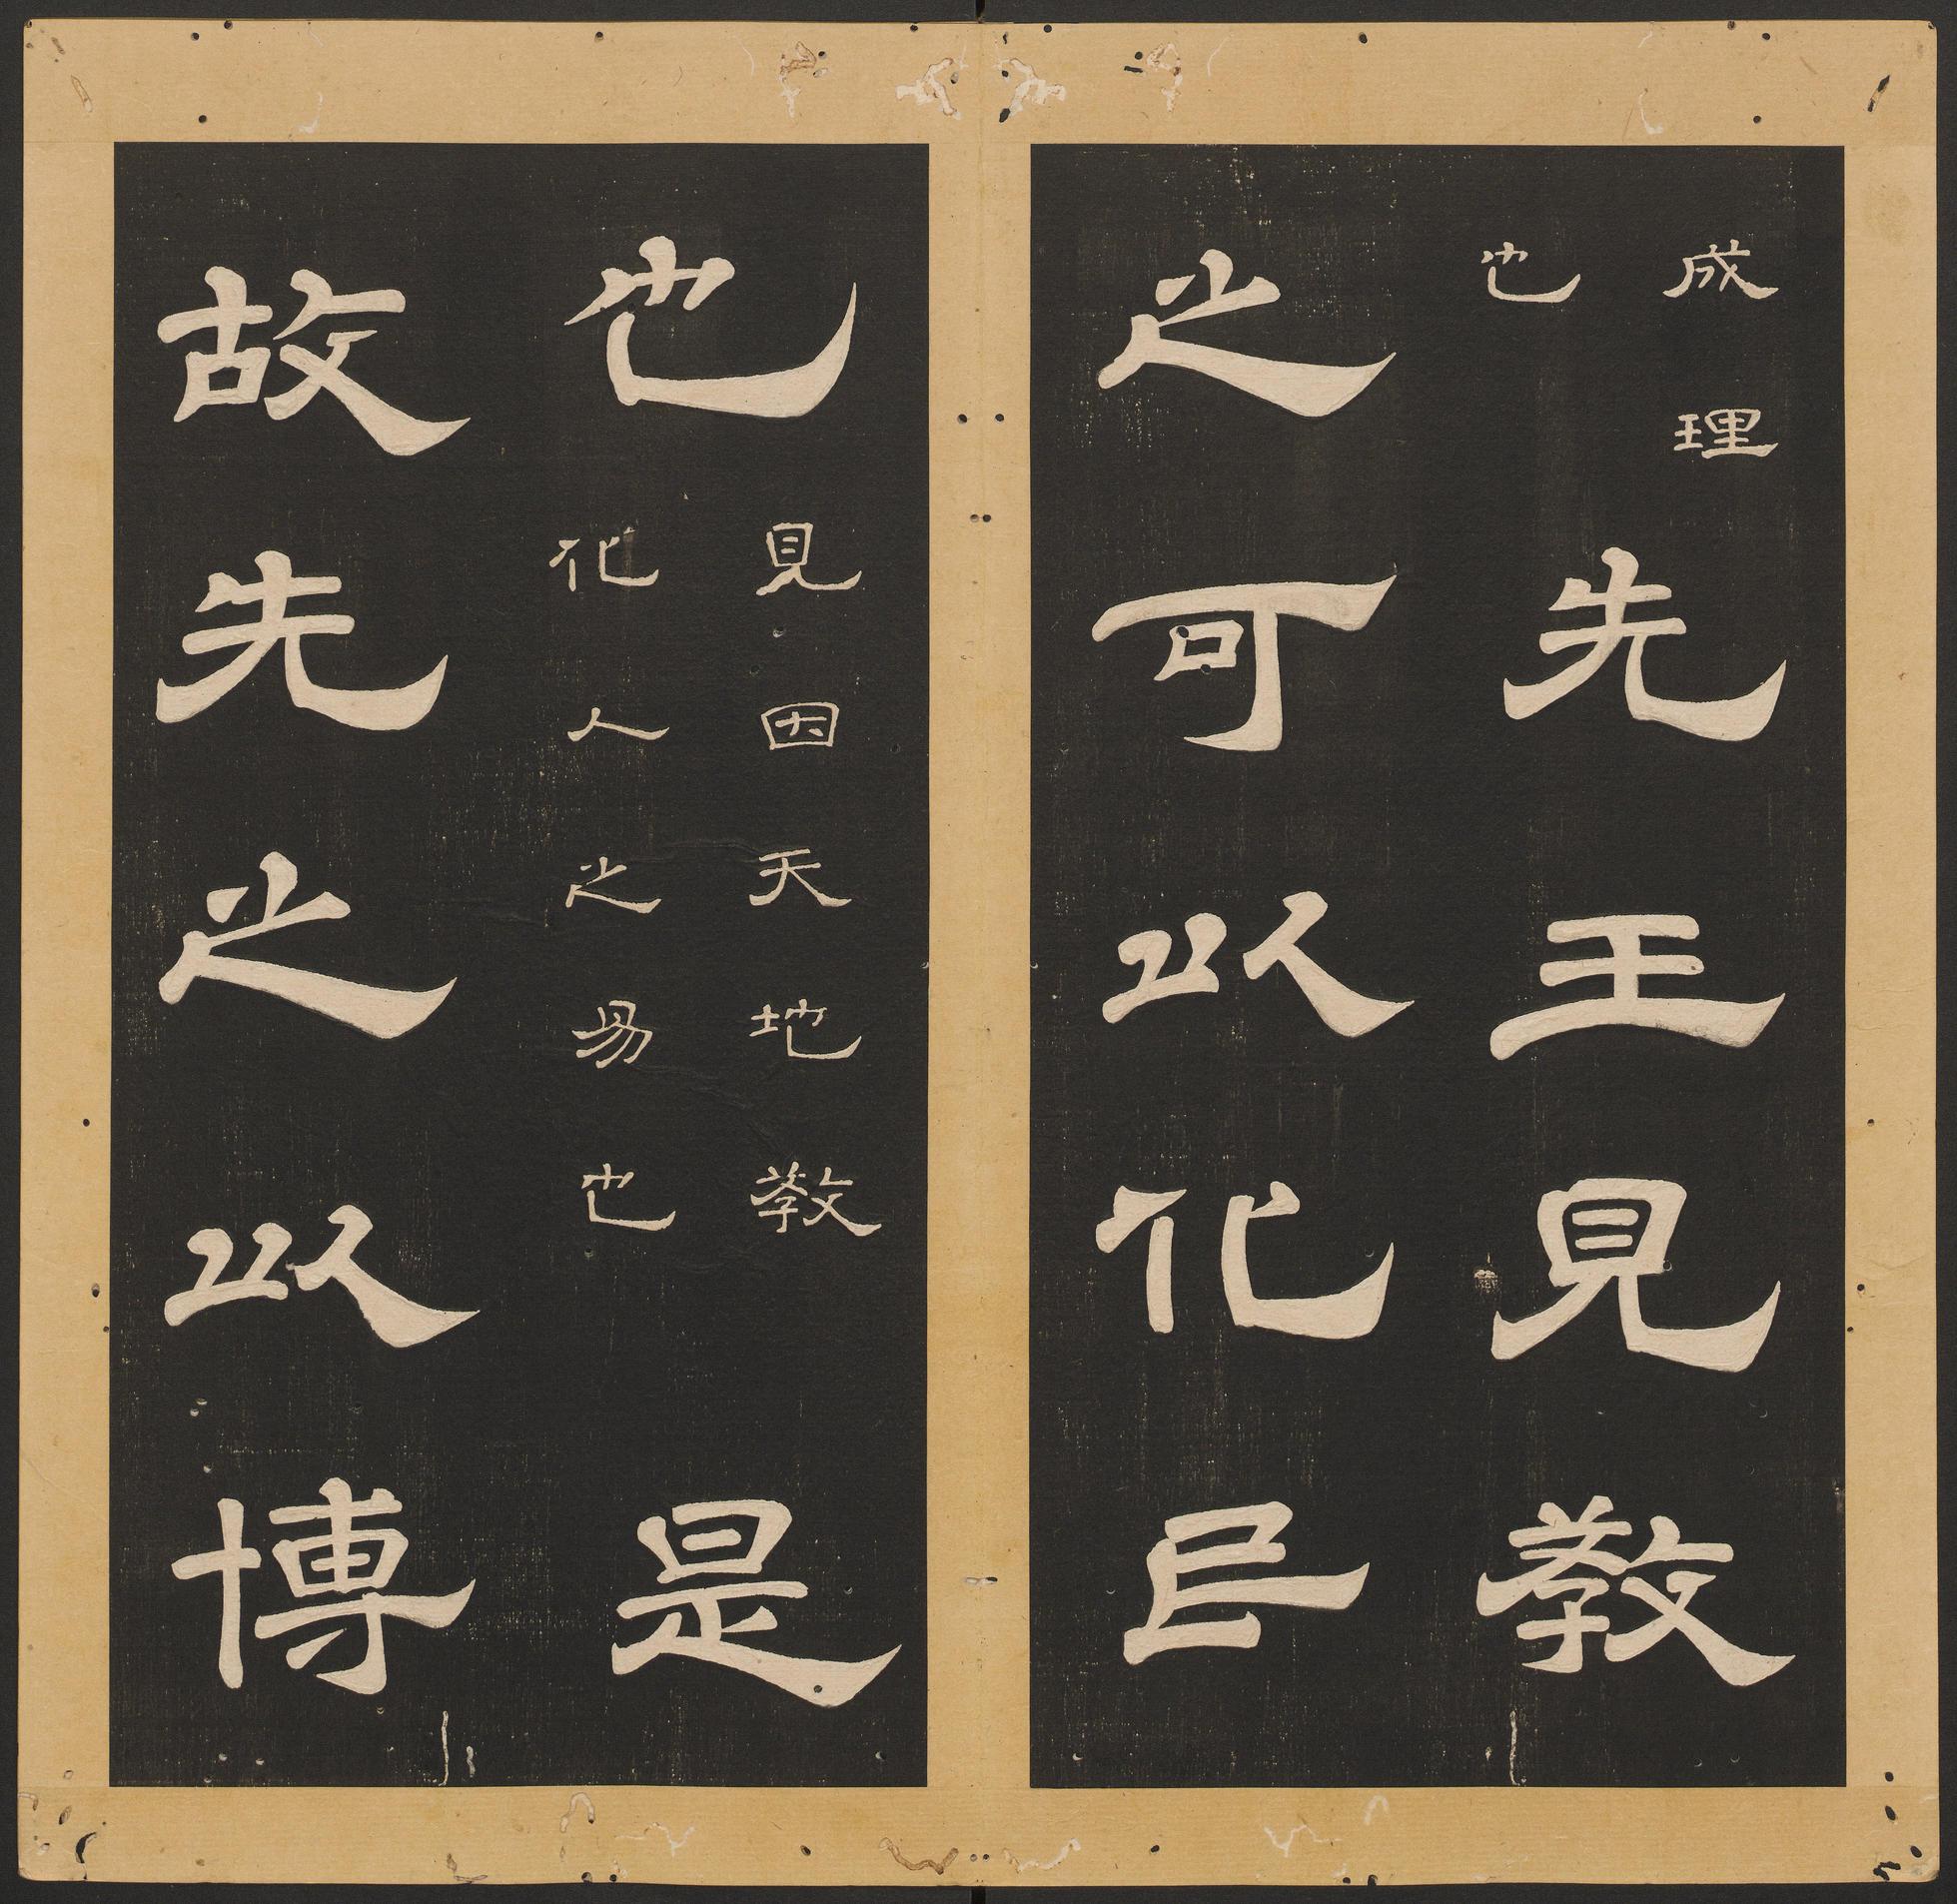 成理
也
先王見教
之可以化民
也
見因天地教
化人之易也
是
故先之以博